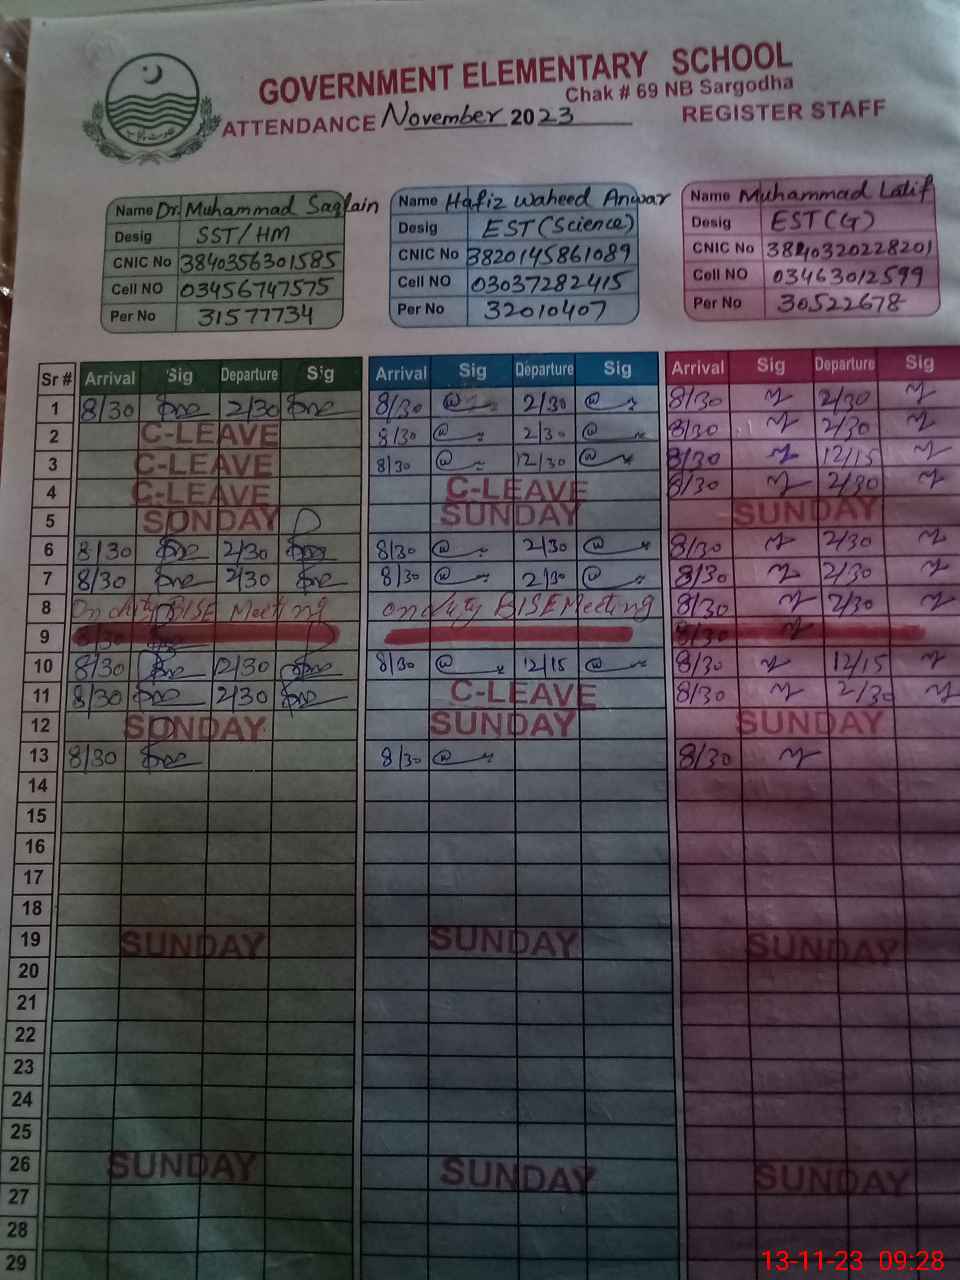 GOVERNMENT ELEMENTARY SCHOOL
Chak # 69 NB Sargodha
ATTENDANCE November 2023 REGISTER STAFF
Name Dr. Muhammad Saqlain
Desig SST/HM
CNIC No 3840356301585
Cell NO 03456747575
Per No 31577734
Name Hafiz Waheed Anwar
Desig EST (Science)
CNIC No 3820145861089
Cell NO 03037282415
Per No 32010407
Name Muhammad Latif
Desig EST (G)
CNIC No 3840320228201
Cell NO 03463012599
Per No 30522678
Sr # Arrival Sig Departure Sig Arrival Sig Departure Sig Arrival Sig Departure Sig
1 8/30 2/30 8/30 2/30 8/30 2/30
2 C-LEAVE 8/30 2/30 8/30 2/30
3 C-LEAVE 8/30 12/30 8/30 12/15
4 C-LEAVE C-LEAVE 8/30 2/30
5 SUNDAY SUNDAY SUNDAY
6 8/30 2/30 8/30 2/30 8/30 2/30
7 8/30 2/30 8/30 2/30 8/30 2/30
8 On duty BISE Meeting on duty BISE Meeting 8/30 2/30
9 8/30 8/30
10 8/30 12/30 8/30 12/15 8/30 12/15
11 8/30 2/30 C-LEAVE 8/30 2/30
12 SUNDAY SUNDAY SUNDAY
13 8/30 8/30 8/30
14
15
16
17
18
19 SUNDAY SUNDAY SUNDAY
20
21
22
23
24
25
26 SUNDAY SUNDAY SUNDAY
27
28
29
13-11-23 09:28